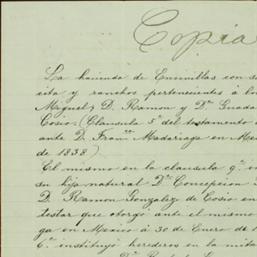 Copia
La hacienda de Encinillas con s
cita y ranchos pertenecientes á los
Miguel, D. Ramon y Dª Guada
Cosio. (Clausula 5ª del testamento
ante D. Franco Madariaga en Mex
de 1838.)
El mismo en la clausula 9ª in
su hija natural Dª Concepcion
D. Ramon Gonzalez de Cosio en
testar que otorgó ante el mismo
ga en México á 30 de Enero de 1
6ª instituyó herederos en la mita